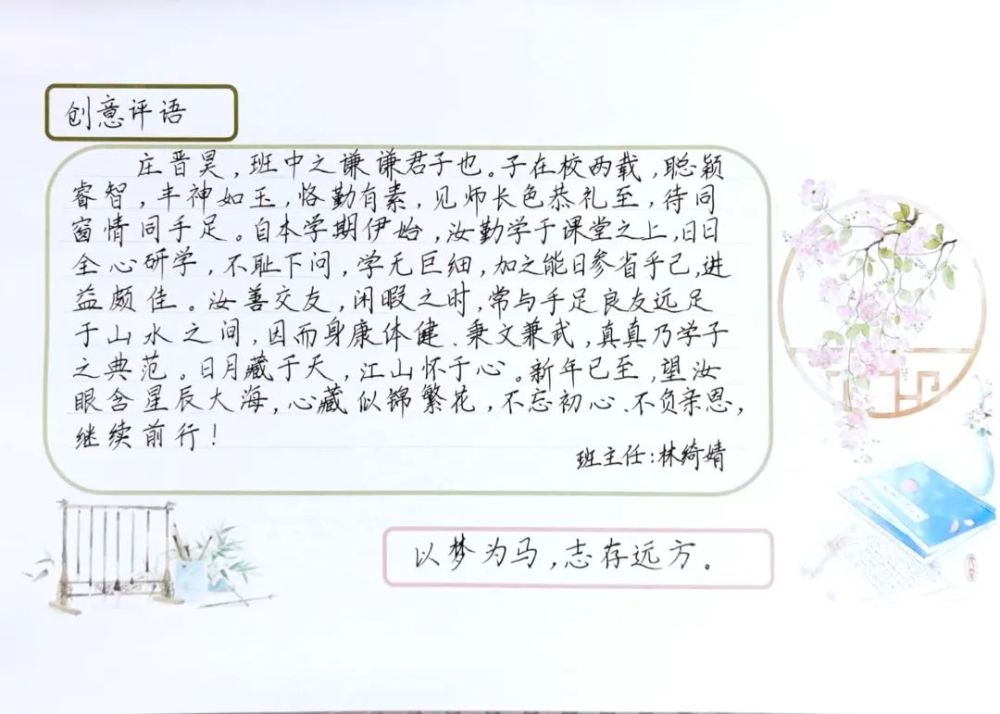 创意评语
庄晋昊，班中之谦谦君子也。子在校两载，聪颖
睿智，丰神如玉，恪勤有素，见师长色恭礼至，待同
窗情同手足。自本学期伊始，汝勤学于课堂之上，日日
全心研学，不耻下问，学无巨细，加之能日参省乎己，进
益颇佳。汝善交友，闲暇之时，常与手足良友远足
于山水之间，因而身康体健、秉文兼武，真真乃学子
之典范。日月藏于天，江山怀于心。新年已至，望汝
眼含星辰大海，心藏似锦繁花，不忘初心、不负亲恩，
继续前行！
班主任：林绮婧
以梦为马，志存远方。